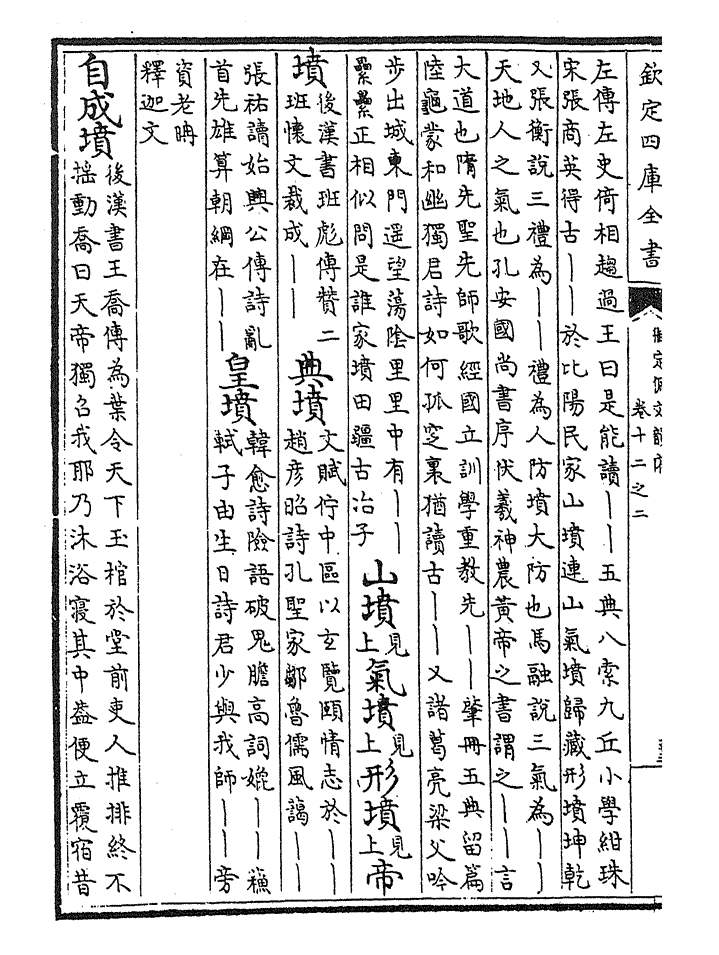 欽定四庫全書
御定佩文韻府
卷十二之二
左傳左史倚相趨過王曰是能讀——五典八索九丘小學紺珠
宋張商英得古——於比陽民家山墳連山氣墳歸藏形墳坤乾
又張衡說三禮為——禮為人防墳大防也馬融說三氣為——
天地人之氣也孔安國尚書序伏羲神農黃帝之書謂之——言
大道也隋先聖先師歌經國立訓學重教先——肇冊五典留篇
陸龜蒙和幽獨君詩如何孤窆裏猶讀古——又諸葛亮梁父吟
步出城東門遥望蕩陰里里中有——
纍纍正相似問是誰家墳田疆古冶子
山墳見上氣墳見上形墳見上帝
墳後漢書班彪傳贊二
班懷文裁成——
典墳文賦佇中區以玄覽頤情志於——
趙彦昭詩孔聖家鄒魯儒風藹——
張祜讀始興公傳詩亂
首先雄算朝綱在——
皇墳韓愈詩險語破鬼膽高詞媲——蘇
軾子由生日詩君少與我師——旁
資老聃
釋迦文
自成墳後漢書王喬傳為葉令天下玉棺於堂前吏人推排終不
摇動喬曰天帝獨召我耶乃沐浴寢其中葢便立覆宿昔